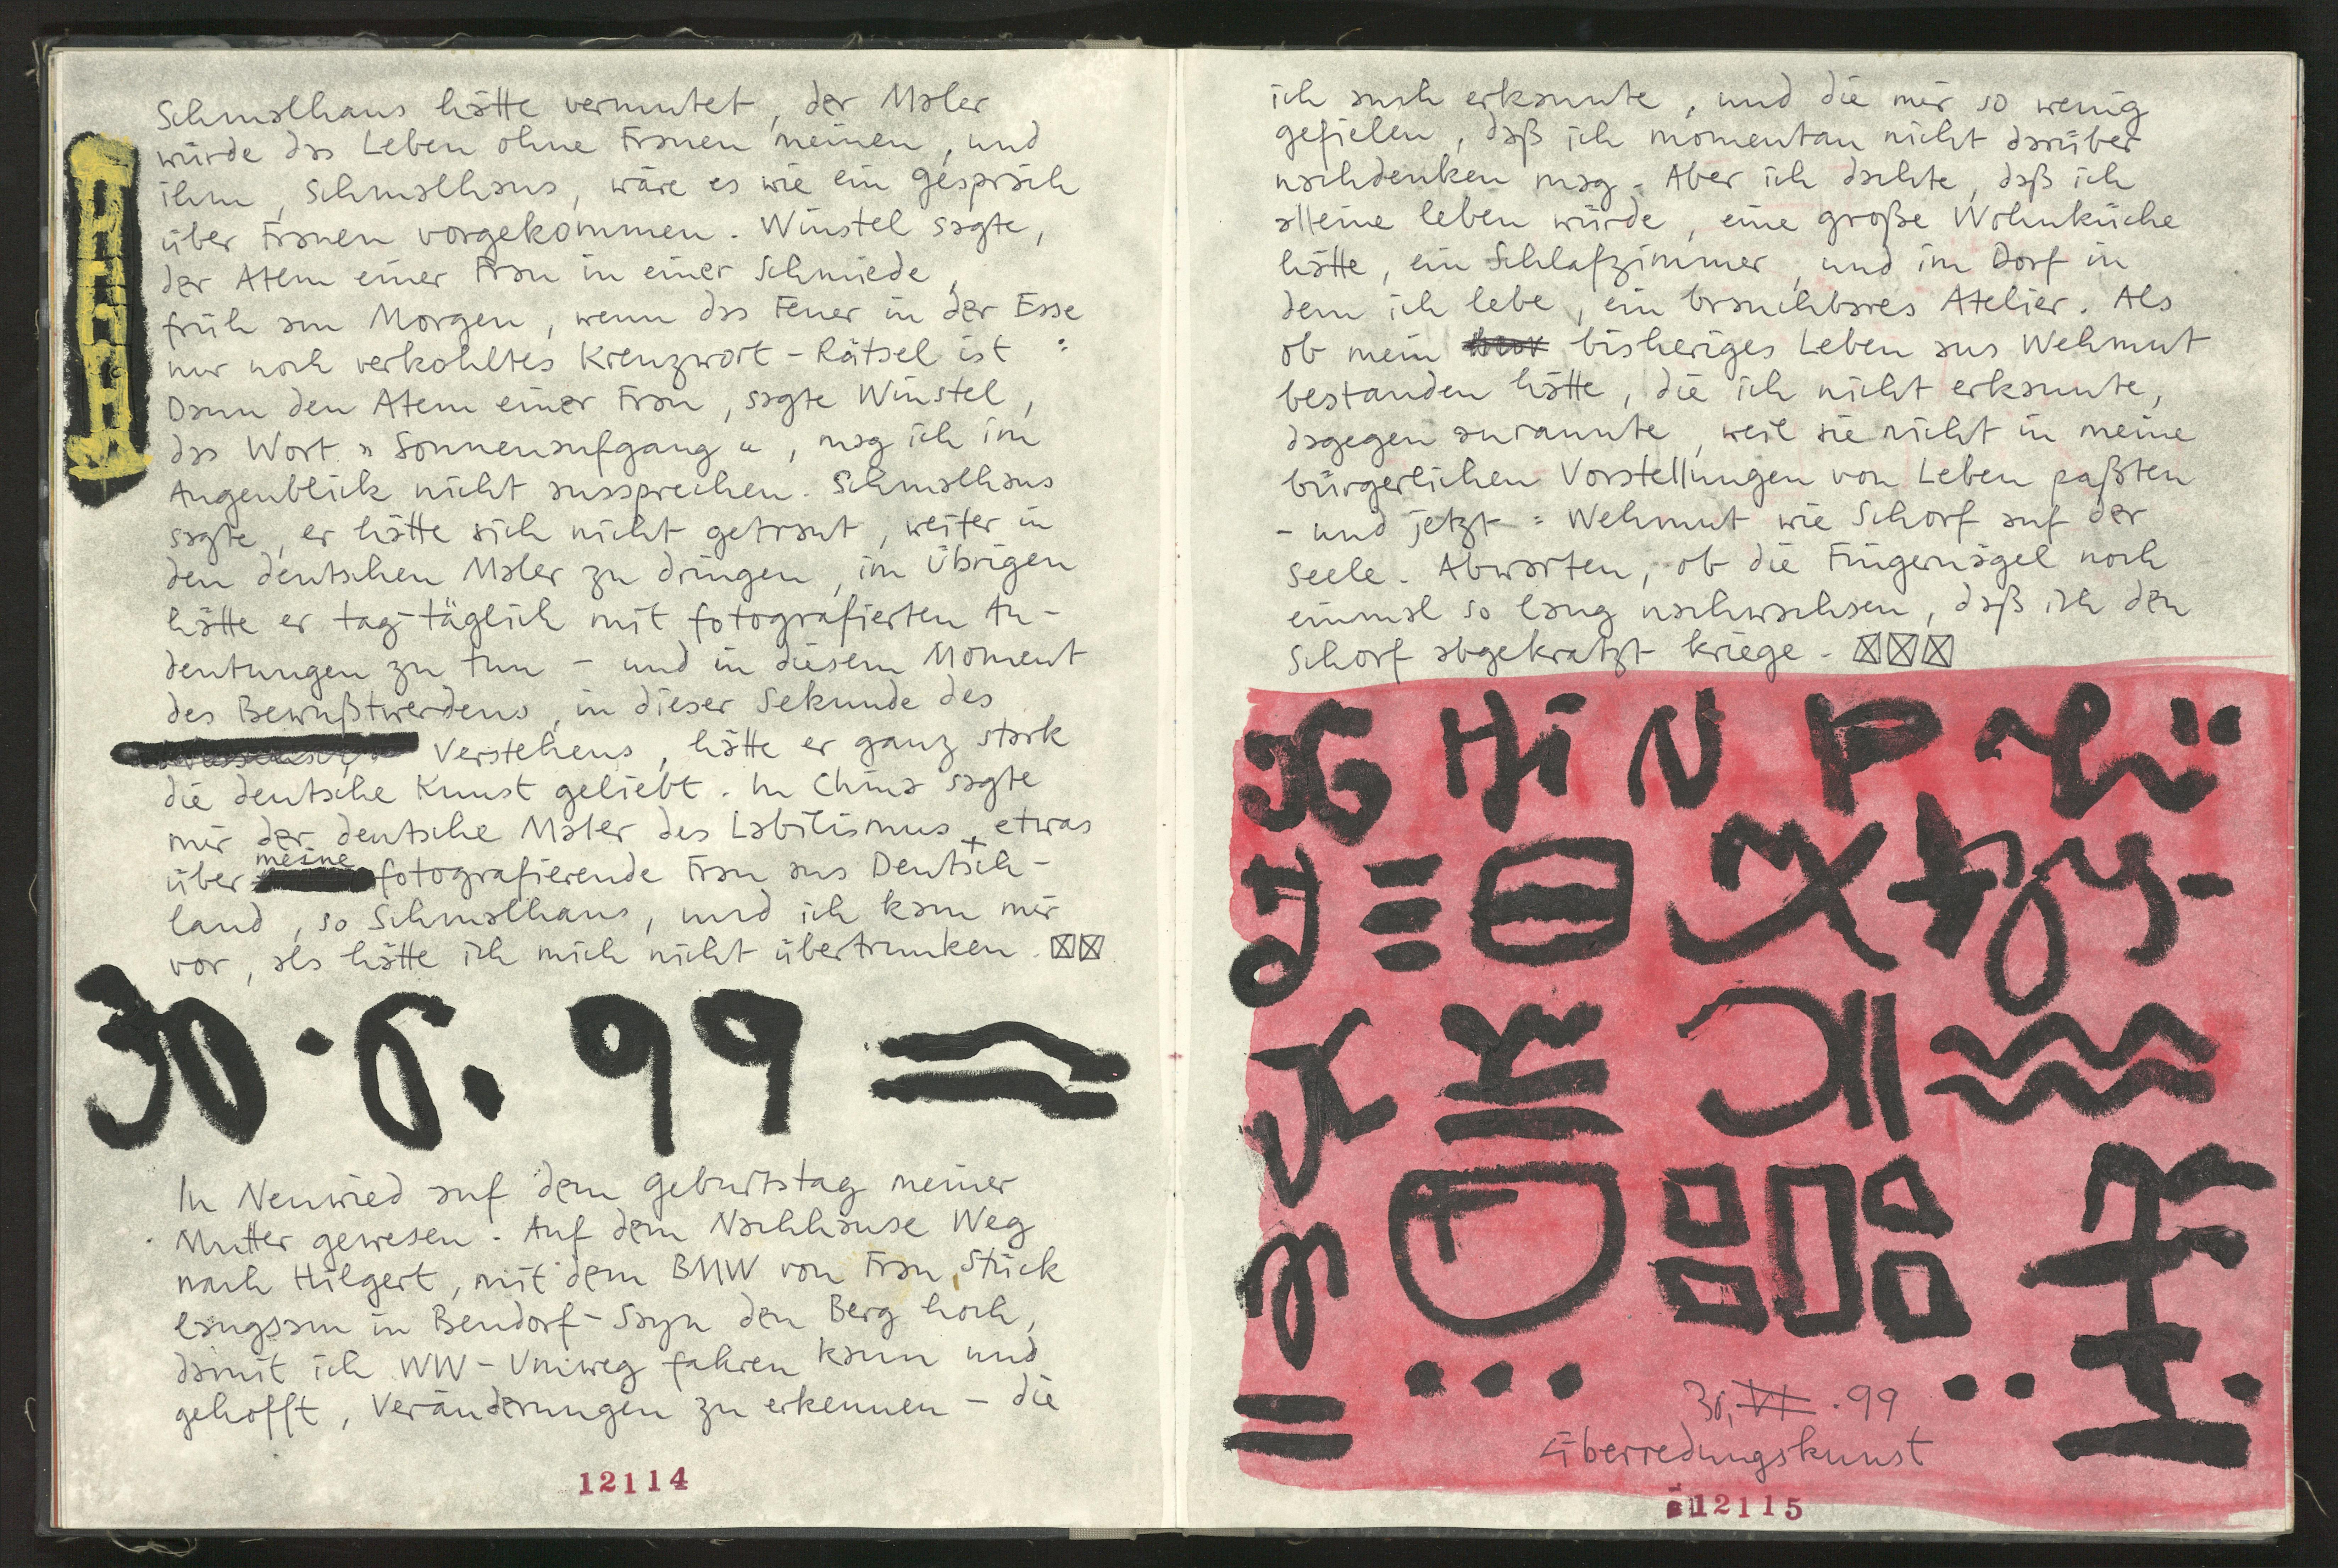 Schmalhaus hätte vermutet, der Maler
würde das Leben ohne Frauen meinen, und
ihm, Schmalhaus, wäre es wie ein Gespräch
über Frauen vorgekommen. Winstel sagte,
der Atem einer Frau in einer Schmiede,
früh am Morgen, wenn das Feuer in der Esse
nur noch verkohltes Kreuzwort-Rätsel ist:
Dann den Atem einer Frau, sagte Winstel,
das Wort "Sonnenaufgang", mag ich im
Augenblick nicht aussprechen. Schmalhaus
sagte, er hätte sich nicht getraut, weiter in
den deutschen Maler zu dringen, im Übrigen
hätte er tag-täglich mit fotografierten An-
deutungen zu tun - und in diesem Moment
des Bewußtwerdens, in dieser Sekunde des
Verstehens, hätte er ganz stark
die deutsche Kunst geliebt. In China sagte
mir der deutsche Maler des Labilismus, etwas
über meine fotografierende Frau aus Deutsch-
land, so Schmalhaus, und ich kam mir
vor, als hätte ich mich nicht übertrunken.
30.6.99
In Neuwied auf dem Geburtstag meiner
Mutter gewesen. Auf dem Nachhause Weg
nach Hilgert, mit dem BMW von Frau Stück
langsam in Bendorf-Sayn den Berg hoch,
damit ich WW-Umweg fahren kann und
gehofft, Veränderungen zu erkennen - die
12114
ich auch erkannte, und die mir so wenig
gefielen, daß ich momentan nicht darüber
nachdenken mag. Aber ich dachte, daß ich
alleine leben würde, eine große Wohnküche
hätte, ein Schlafzimmer, und im Dorf in
dem ich lebe, ein brauchbares Atelier. Als
ob mein bisheriges Leben aus Wehmut
bestanden hätte, die ich nicht erkannte,
dagegen anrannte, weil sie nicht in meine
bürgerlichen Vorstellungen von Leben paßten
- und jetzt: Wehmut wie Schorf auf der
Seele. Abwarten, ob die Fingernägel noch
einmal so lang nachwachsen, daß ich den
Schorf abgekratzt kriege.
30.VI.99
Überredungskunst
12115